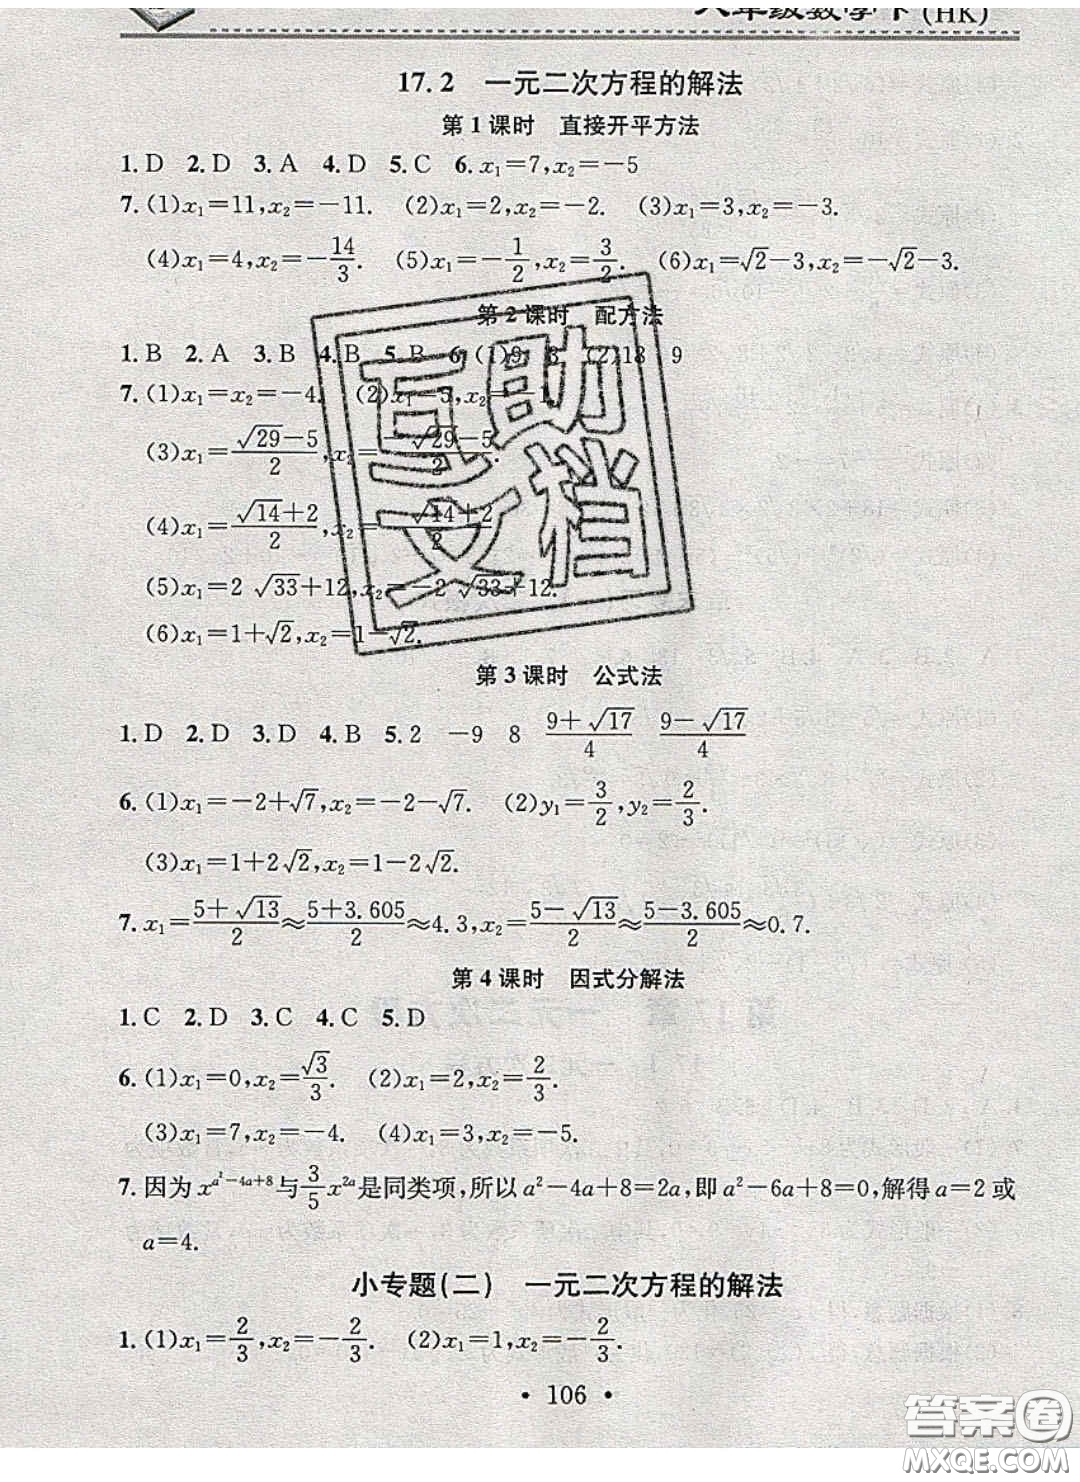 八年级数学下(HK)
17.2 一元二次方程的解法
第1课时 直接开平方法
1. D 2. D 3. A 4. D 5. C 6. x₁=7,x₂=-5
7. (1)x₁=11,x₂=-11. (2)x₁=2,x₂=-2. (3)x₁=3,x₂=-3.
(4)x₁=4,x₂=-14/3. (5)x₁=-1/2,x₂=3/2. (6)x₁=√2-3,x₂=-√2-3.
第2课时 配方法
1. B 2. A 3. B 4. B 5. B 6. (1)9 3 (2)18 9
7. (1)x₁=x₂=-4. (2)x₁=5,x₂=-1.
(3)x₁=(√29-5)/2,x₂=(-√29-5)/2.
(4)x₁=(√14+2)/2,x₂=(-√14+2)/2
(5)x₁=2√33+12,x₂=-2√33+12.
(6)x₁=1+√2,x₂=1-√2.
第3课时 公式法
1. D 2. D 3. D 4. B 5. 2 -9 8 (9+√17)/4 (9-√17)/4
6. (1)x₁=-2+√7,x₂=-2-√7. (2)y₁=3/2,y₂=2/3.
(3)x₁=1+2√2,x₂=1-2√2.
7. x₁=(5+√13)/2≈(5+3.605)/2≈4.3,x₂=(5-√13)/2≈(5-3.605)/2≈0.7.
第4课时 因式分解法
1. C 2. D 3. C 4. C 5. D
6. (1)x₁=0,x₂=√3/3. (2)x₁=2,x₂=2/3.
(3)x₁=7,x₂=-4. (4)x₁=3,x₂=-5.
7. 因为x^(a²-4a+8)与3/5x^(2a)是同类项,所以a²-4a+8=2a,即a²-6a+8=0,解得a=2或
a=4.
小专题(二) 一元二次方程的解法
1. (1)x₁=2/3,x₂=-2/3. (2)x₁=1,x₂=-2/3.
• 106 •
互助
文档
答案卷
MXQE.COM